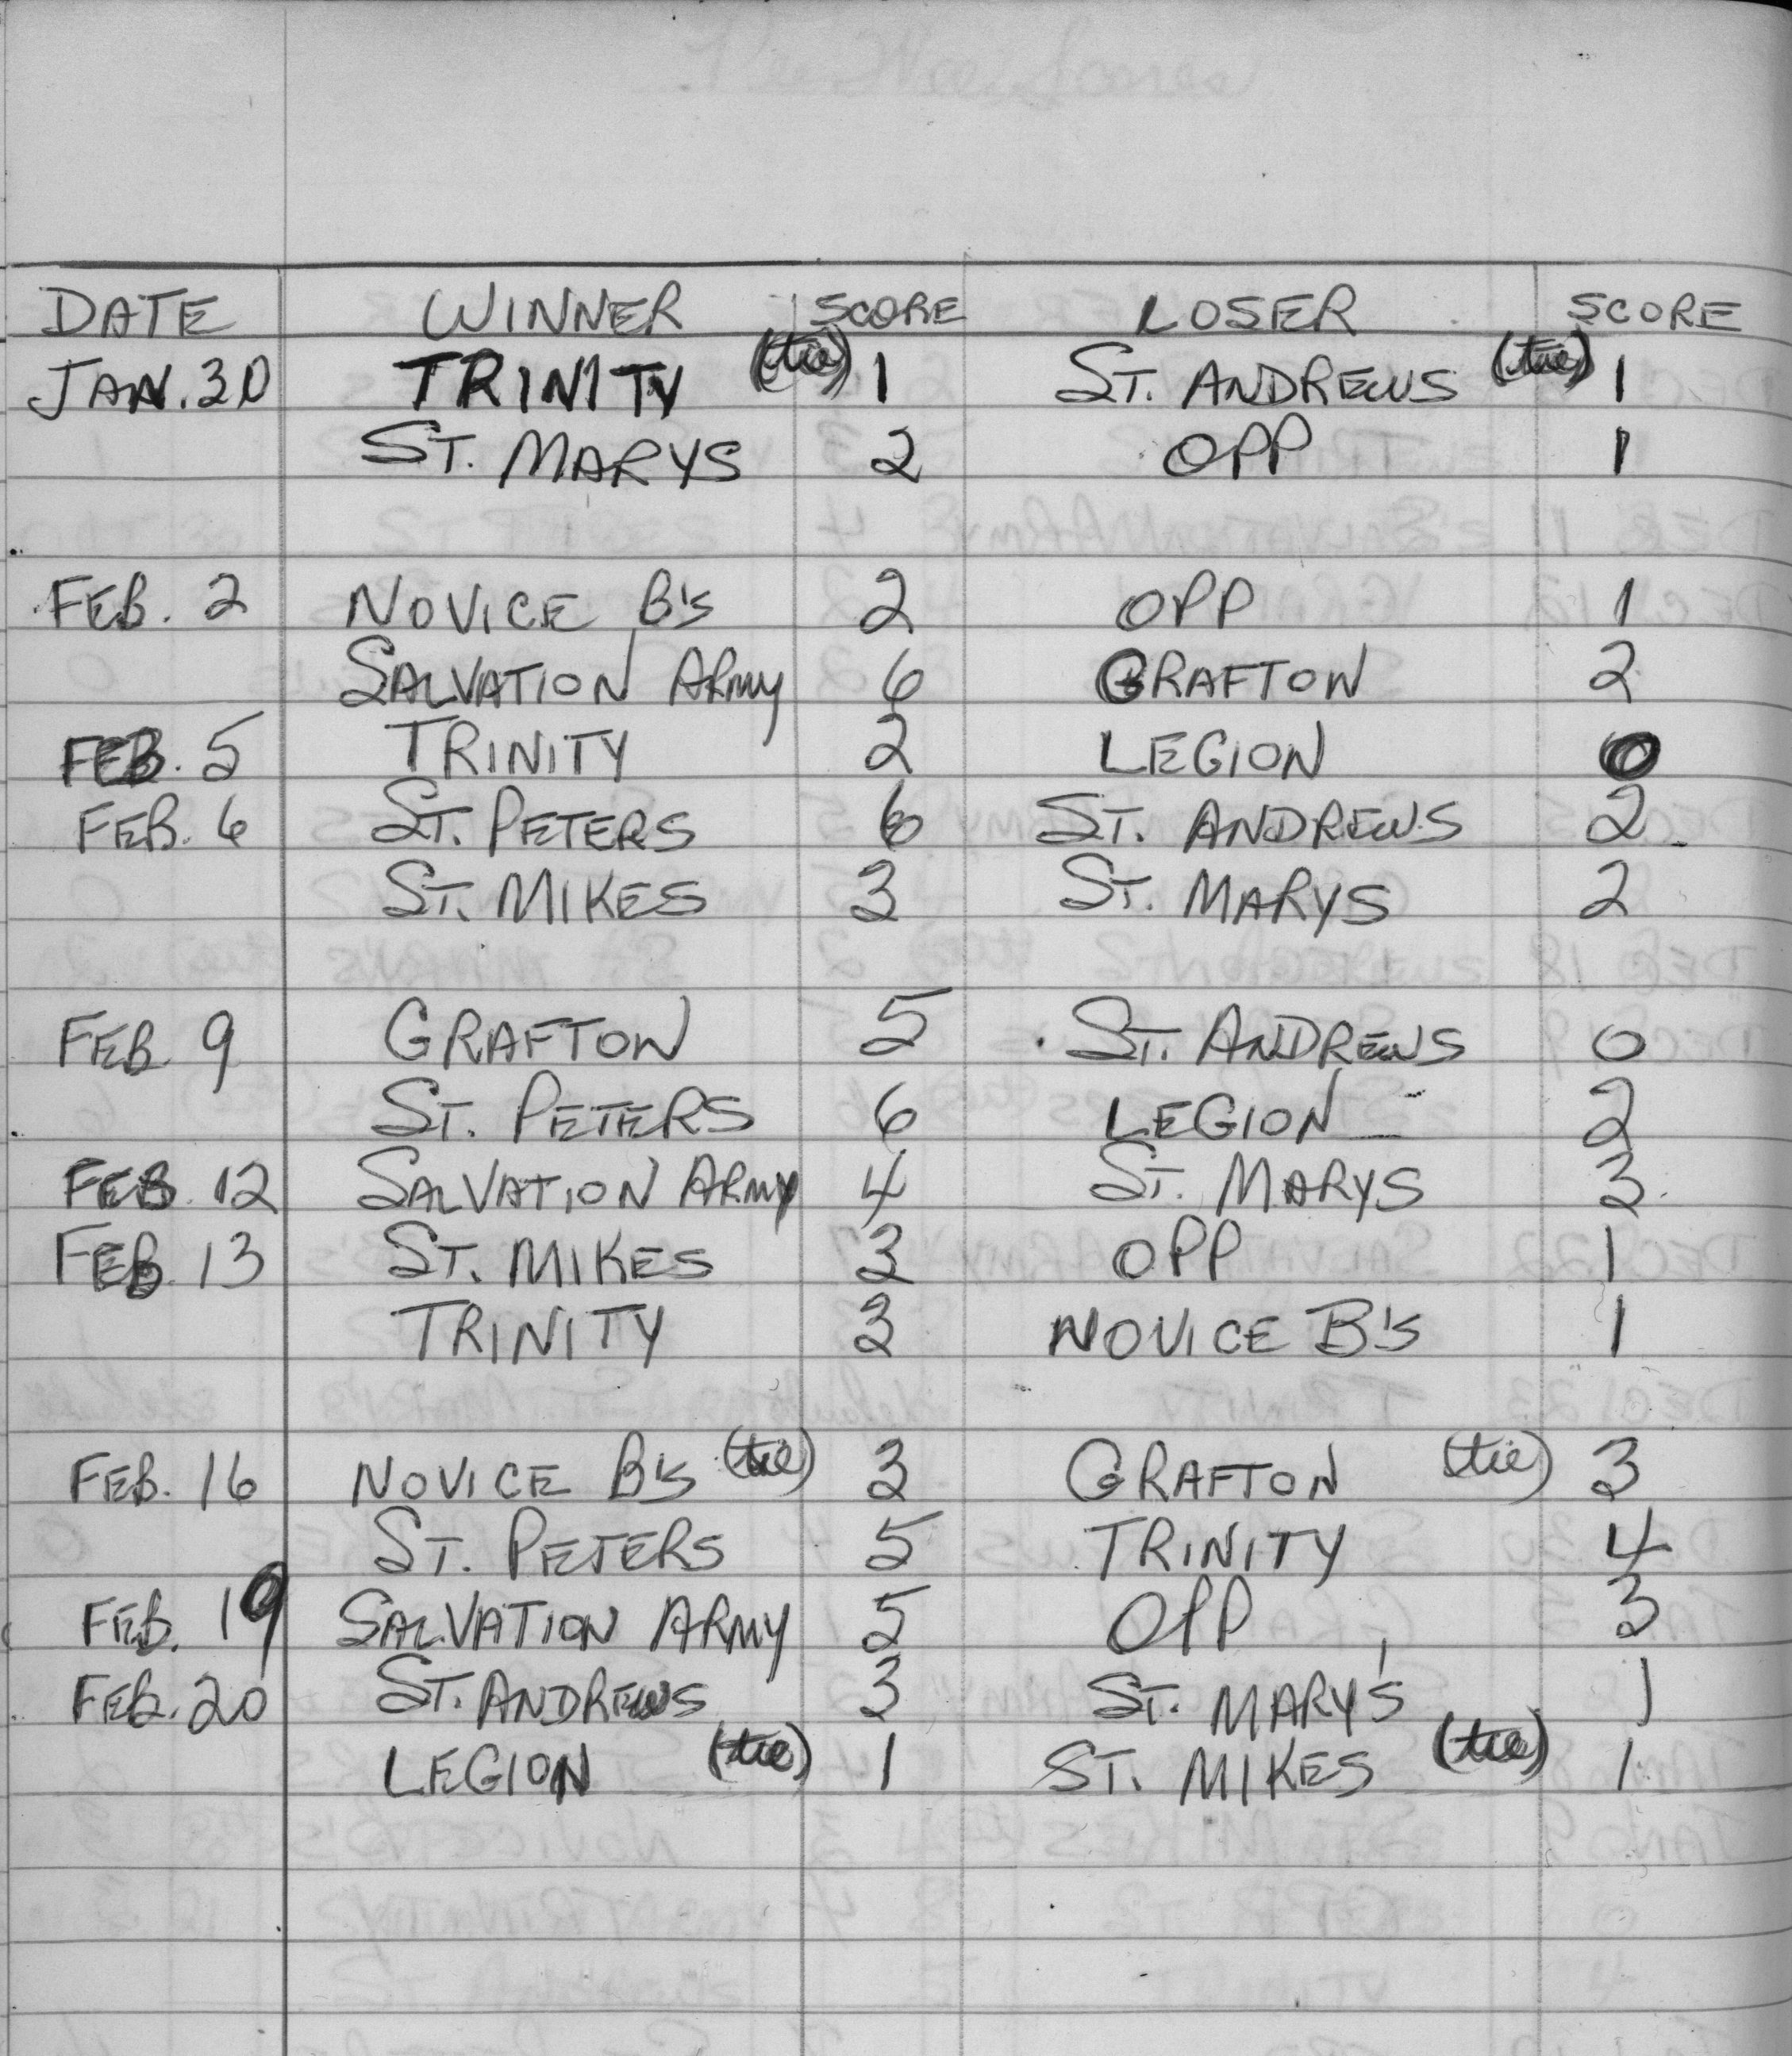 DATE WINNER SCORE LOSER SCORE
JAN. 30 TRINITY (tie) 1 ST. ANDREWS (tie) 1
ST. MARYS 2 OPP 1
FEB. 2 NOVICE B's 2 OPP 1
SALVATION ARMY 6 GRAFTON 2
FEB. 5 TRINITY 2 LEGION 0
FEB. 6 ST. PETERS 6 ST. ANDREWS 2
ST. MIKES 3 ST. MARYS 2
FEB. 9 GRAFTON 5 ST. ANDREWS 0
ST. PETERS 6 LEGION 2
FEB. 12 SALVATION ARMY 4 ST. MARYS 3
FEB. 13 ST. MIKES 3 OPP 1
TRINITY 3 NOVICE B's 1
FEB. 16 NOVICE B's (tie) 3 GRAFTON (tie) 3
ST. PETERS 5 TRINITY 4
FEB. 19 SALVATION ARMY 5 OPP 3
FEB. 20 ST. ANDREWS 3 ST. MARY'S 1
LEGION (tie) 1 ST. MIKES (tie) 1